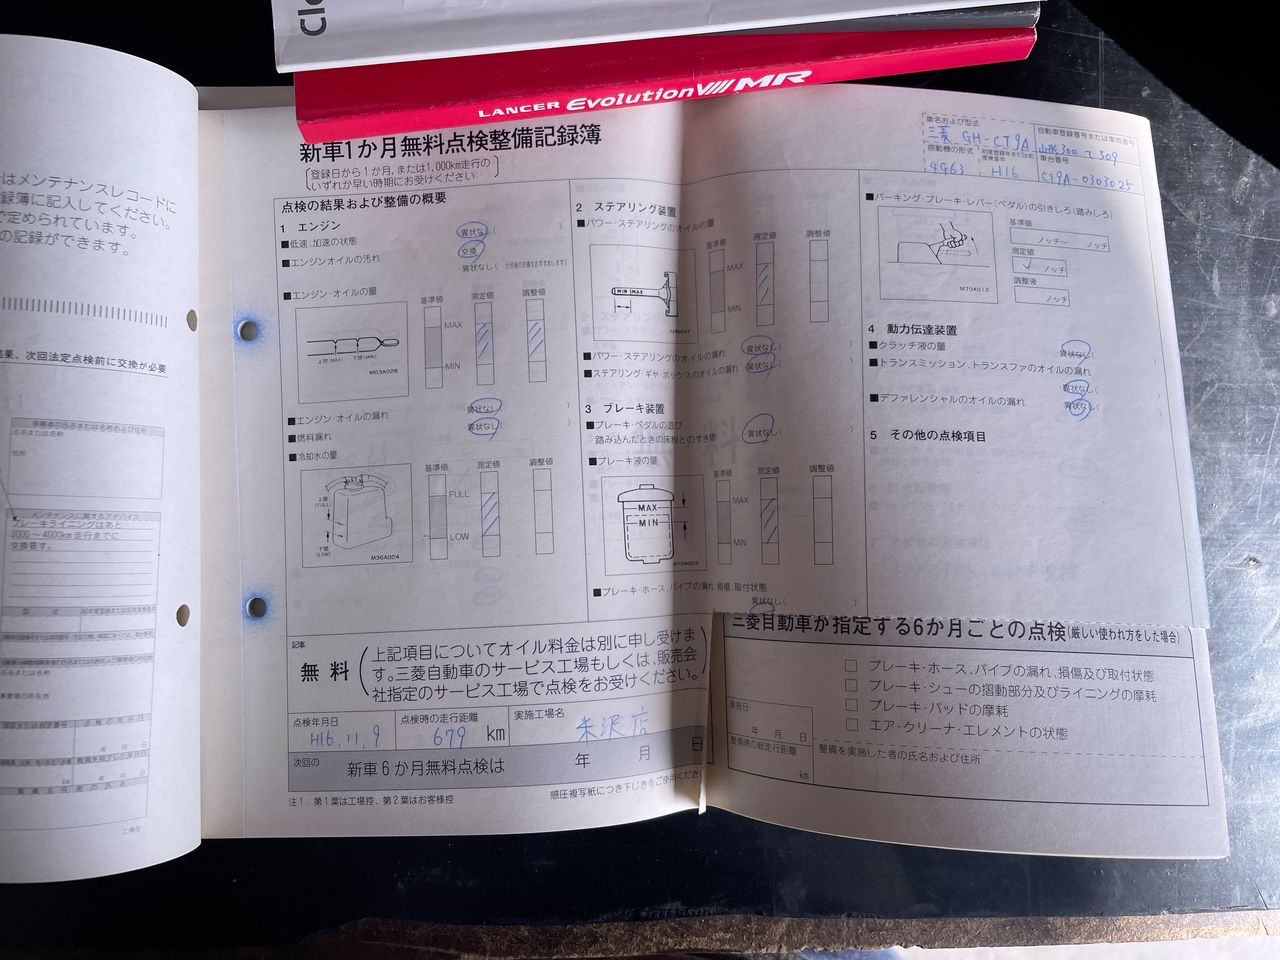 Cl
LANCER Evolution VIII MR
新車1か月無料点検整備記録簿
登録日から1か月、または1,000km走行の
いずれか早い時期にお受けください
車名および型式
三菱 GH-CT9A
自動車登録番号または車両番号
山形300 て 509
原動機の形式
4G63
H16
車台番号
CT9A-0303025
点検の結果および整備の概要
1 エンジン
■低速、加速の状態
異状なし
■エンジンオイルの汚れ
交換
異状なし( か月後の交換をおすすめします)
■エンジン・オイルの量
基準値 測定値 調整値
MAX
MIN
上限(MAX) 下限(MIN)
M03A028
■エンジン・オイルの漏れ
異状なし( )
■燃料漏れ
異状なし( )
■冷却水の量
基準値 測定値 調整値
FULL
LOW
上限(FULL)
下限(LOW)
M36A004
2 ステアリング装置
■パワー・ステアリングのオイルの量
基準値 測定値 調整値
MIN MAX
MAX
MIN
■パワー・ステアリングのオイルの漏れ
異状なし( )
■ステアリング・ギヤ・ボックスのオイルの漏れ
異状なし( )
3 ブレーキ装置
■ブレーキ・ペダルの遊び
踏み込んだときの床板とのすき間
異状なし( )
■ブレーキ液の量
基準値 測定値 調整値
MAX
MIN
MAX
MIN
M70A003
■ブレーキ・ホース、パイプの漏れ、損傷、取付状態
異状なし( )
■パーキング・ブレーキ・レバー(ペダル)の引きしろ(踏みしろ)
基準値
ノッチ〜 ノッチ
測定値
ノッチ
調整後
ノッチ
M70A012
4 動力伝達装置
■クラッチ液の量
異状なし( )
■トランスミッション、トランスファのオイルの漏れ
異状なし( )
■デファレンシャルのオイルの漏れ
異状なし( )
5 その他の点検項目
記事
無料
上記項目についてオイル料金は別に申し受けま
す。三菱自動車のサービス工場もしくは、販売会
社指定のサービス工場で点検をお受けください。
点検年月日
H16, 11, 9
点検時の走行距離
679 km
実施工場名
米沢店
次回の
新車6か月無料点検は 年 月 日
注1. 第1葉は工場控、第2葉はお客様控
感圧複写紙につき下じきをご使用くださ
三菱自動車が指定する6か月ごとの点検(厳しい使われ方をした場合)
□ ブレーキ・ホース、パイプの漏れ、損傷及び取付状態
□ ブレーキ・シューの摺動部分及びライニングの摩耗
□ ブレーキ・パッドの摩耗
□ エア・クリーナ・エレメントの状態
実施日
年 月 日
整備時の総走行距離
km
整備を実施した者の氏名および住所
はメンテナンスレコードに
録簿に記入してください。
で定められています。
の記録ができます。
結果、次回法定点検前に交換が必要
依頼者の氏名または名称および住所
氏名または名称
住所
メンテナンスに関するアドバイス
ブレーキライニングはあと
3000〜4000km走行までに
交換要す。
型式
年 月 日
km
年 月 日
工場控